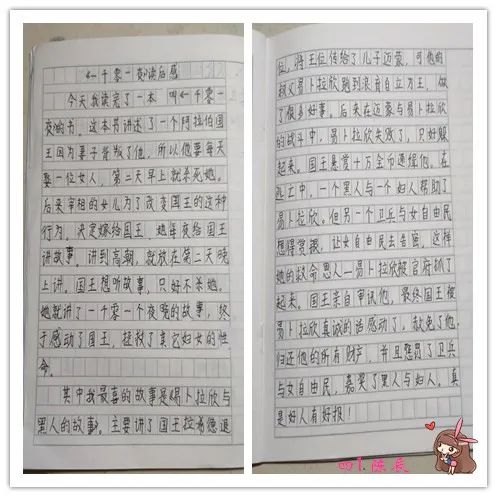 《一千零一夜》读后感
今天我读完了一本 叫《一千零一
夜》的书。这本书讲述了一个阿拉伯国
王因为妻子背叛了他，所以他要每天
娶一位女人，第二天早上就杀死她。
后来宰相的女儿为了改变国王的这种
行为，决定嫁给国王，她每夜给国王
讲故事。讲到高潮，就放在第二天晚
上讲。国王想听故事，只好不杀她。
她就讲了一千零一个夜晚的故事，终
于感动了国王，拯救了其它妇女的性
命。
其中我最喜的故事是《易卜拉欣与
黑人的故事》。主要讲了国王拉希德退
位，将王位传给了儿子迈蒙，可他的
叔父易卜拉欣跑到浪育自立为王，做
了很多好事。后来在迈蒙与易卜拉欣
的战斗中，易卜拉欣失败了，只好躲
起来。国王悬赏十万金币通缉他。在
逃亡中，一个黑人与一个妇人帮助了
易卜拉欣。但另一个卫兵与女自由民
想得赏报，让女自由民去告密，这样
她的救命恩人—易卜拉欣被官府抓了
起来。国王亲自审讯他，最终国王被
易卜拉欣真诚的话感动了，赦免了他，
归还他的所有财产，并且惩罚了卫兵
与女自由民，嘉奖了黑人与妇人。真
是好人有好报！
四1.陈